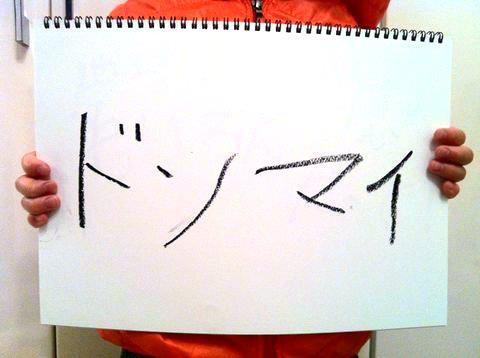 ドンマイ